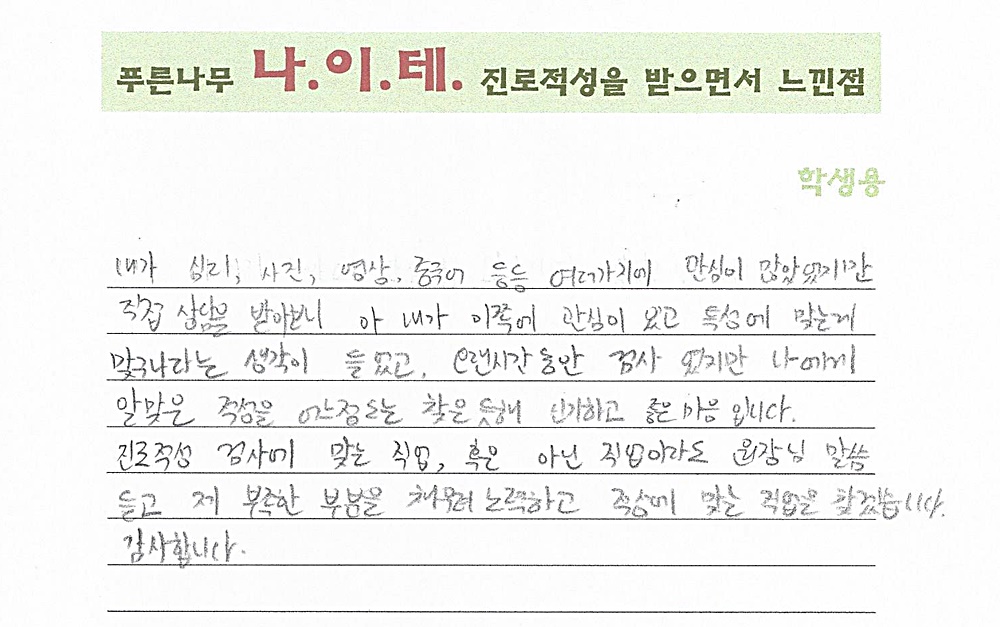 푸른나무 나.이.테. 진로적성을 받으면서 느낀점
학생용
내가 심리, 사진, 영상, 중국어 등등 여러가지에 관심이 많았었지만
직접 상담을 받아보니 아 내가 이쪽에 관심이 있고 특성에 맞는게
맞구나라는 생각이 들었고, 오랜시간동안 검사 였지만 나에게
알맞은 적성을 어느정도는 찾은 듯해 신기하고 좋은 마음 입니다.
진로적성 검사에 맞는 직업, 혹은 아닌 직업이라도 원장님 말씀
듣고 제 부족한 부분을 채우려 노력하고 적성에 맞는 직업을 찾겠습니다.
감사합니다.